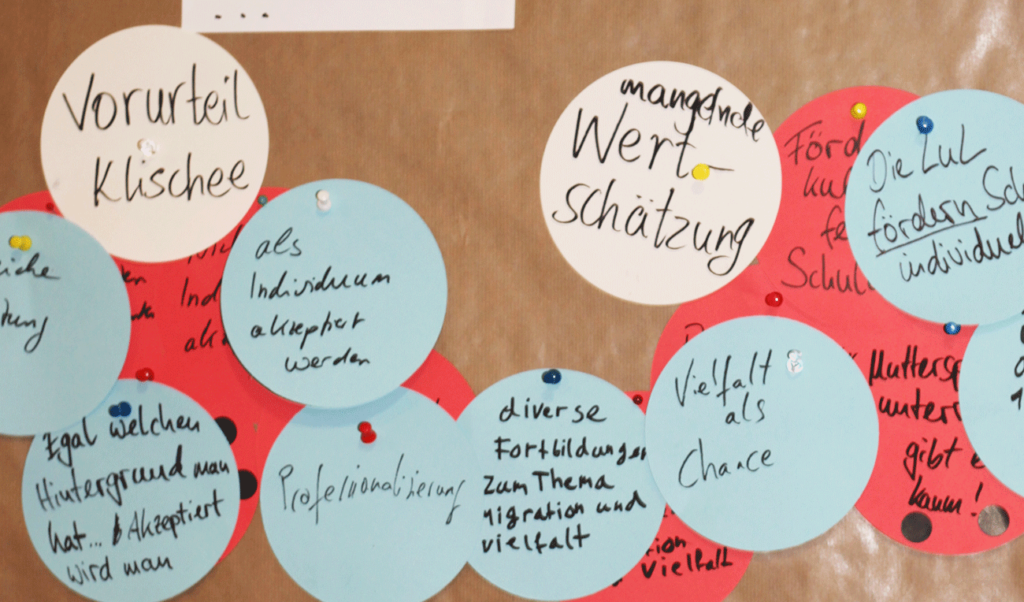 Vorurteil
Klischee
mangelnde
Wert-
schätzung
Die LuL
fördern
individuel
Schul
als
Individuum
akzeptiert
werden
Ind
Egal welchen
Hintergrund man
hat... Akzeptiert
wird man
Professionalisierung
diverse
Fortbildungen
zum Thema
Migration und
vielfalt
Vielfalt
als
Chance
Muttersp
unterr
gibt e
kaum!
tion
Vielfalt